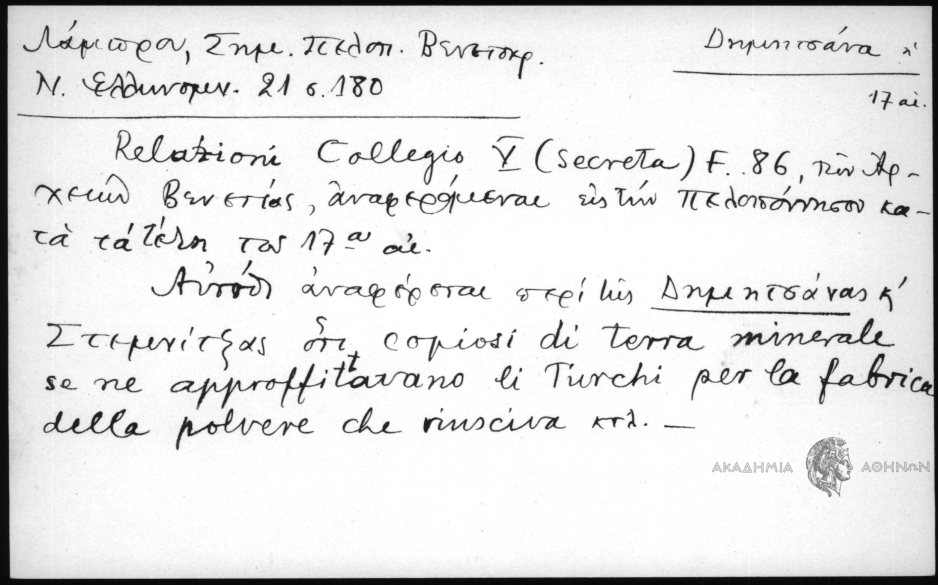 Λάμπρου, Σημ. Πελοπ. Βενετοκρ.
Δημητσάνα
Ν. Ελληνομν. 21 σ. 180
17 αἰ.
Relazioni Collegio V (Secreta) F. 86, τῶν Ἀρ-
χείων Βενετίας, ἀναφερόμεναι εἰς τήν Πελοπόννησον κα-
τὰ τά τέλη του 17ου αἰ.
Αὐτόθι ἀναφέρεται περί τῆς Δημητσάνας κ'
Στεμνίτζας ὅτι copiosi di terra minerale
se ne approffittavano li Turchi per la fabrica
della polvere che riusciva κτλ. —
ΑΚΑΔΗΜΙΑ ΑΘΗΝΩΝ